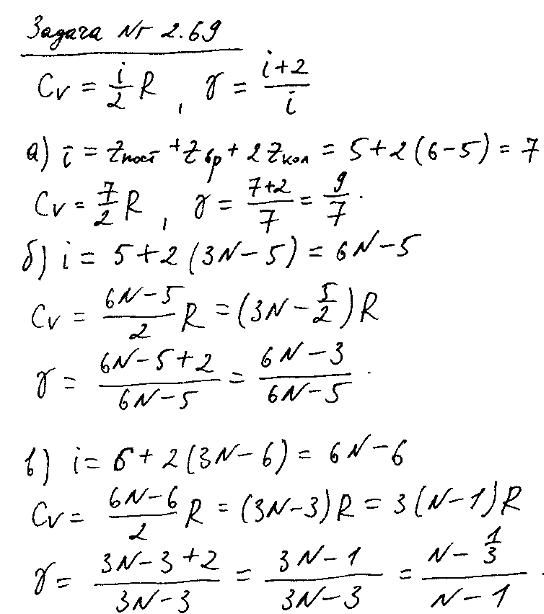 Задача № 2.69
Cv = i/2 R, γ = (i+2)/i
а) i = Zпост + Zвр + 2Zкол = 5+2(6-5) = 7
Cv = 7/2 R, γ = (7+2)/7 = 9/7.
б) i = 5+2(3N-5) = 6N-5
Cv = (6N-5)/2 R = (3N-5/2)R
γ = (6N-5+2)/(6N-5) = (6N-3)/(6N-5).
в) i = 6+2(3N-6) = 6N-6
Cv = (6N-6)/2 R = (3N-3)R = 3(N-1)R
γ = (3N-3+2)/(3N-3) = (3N-1)/(3N-3) = (N-1/3)/(N-1).